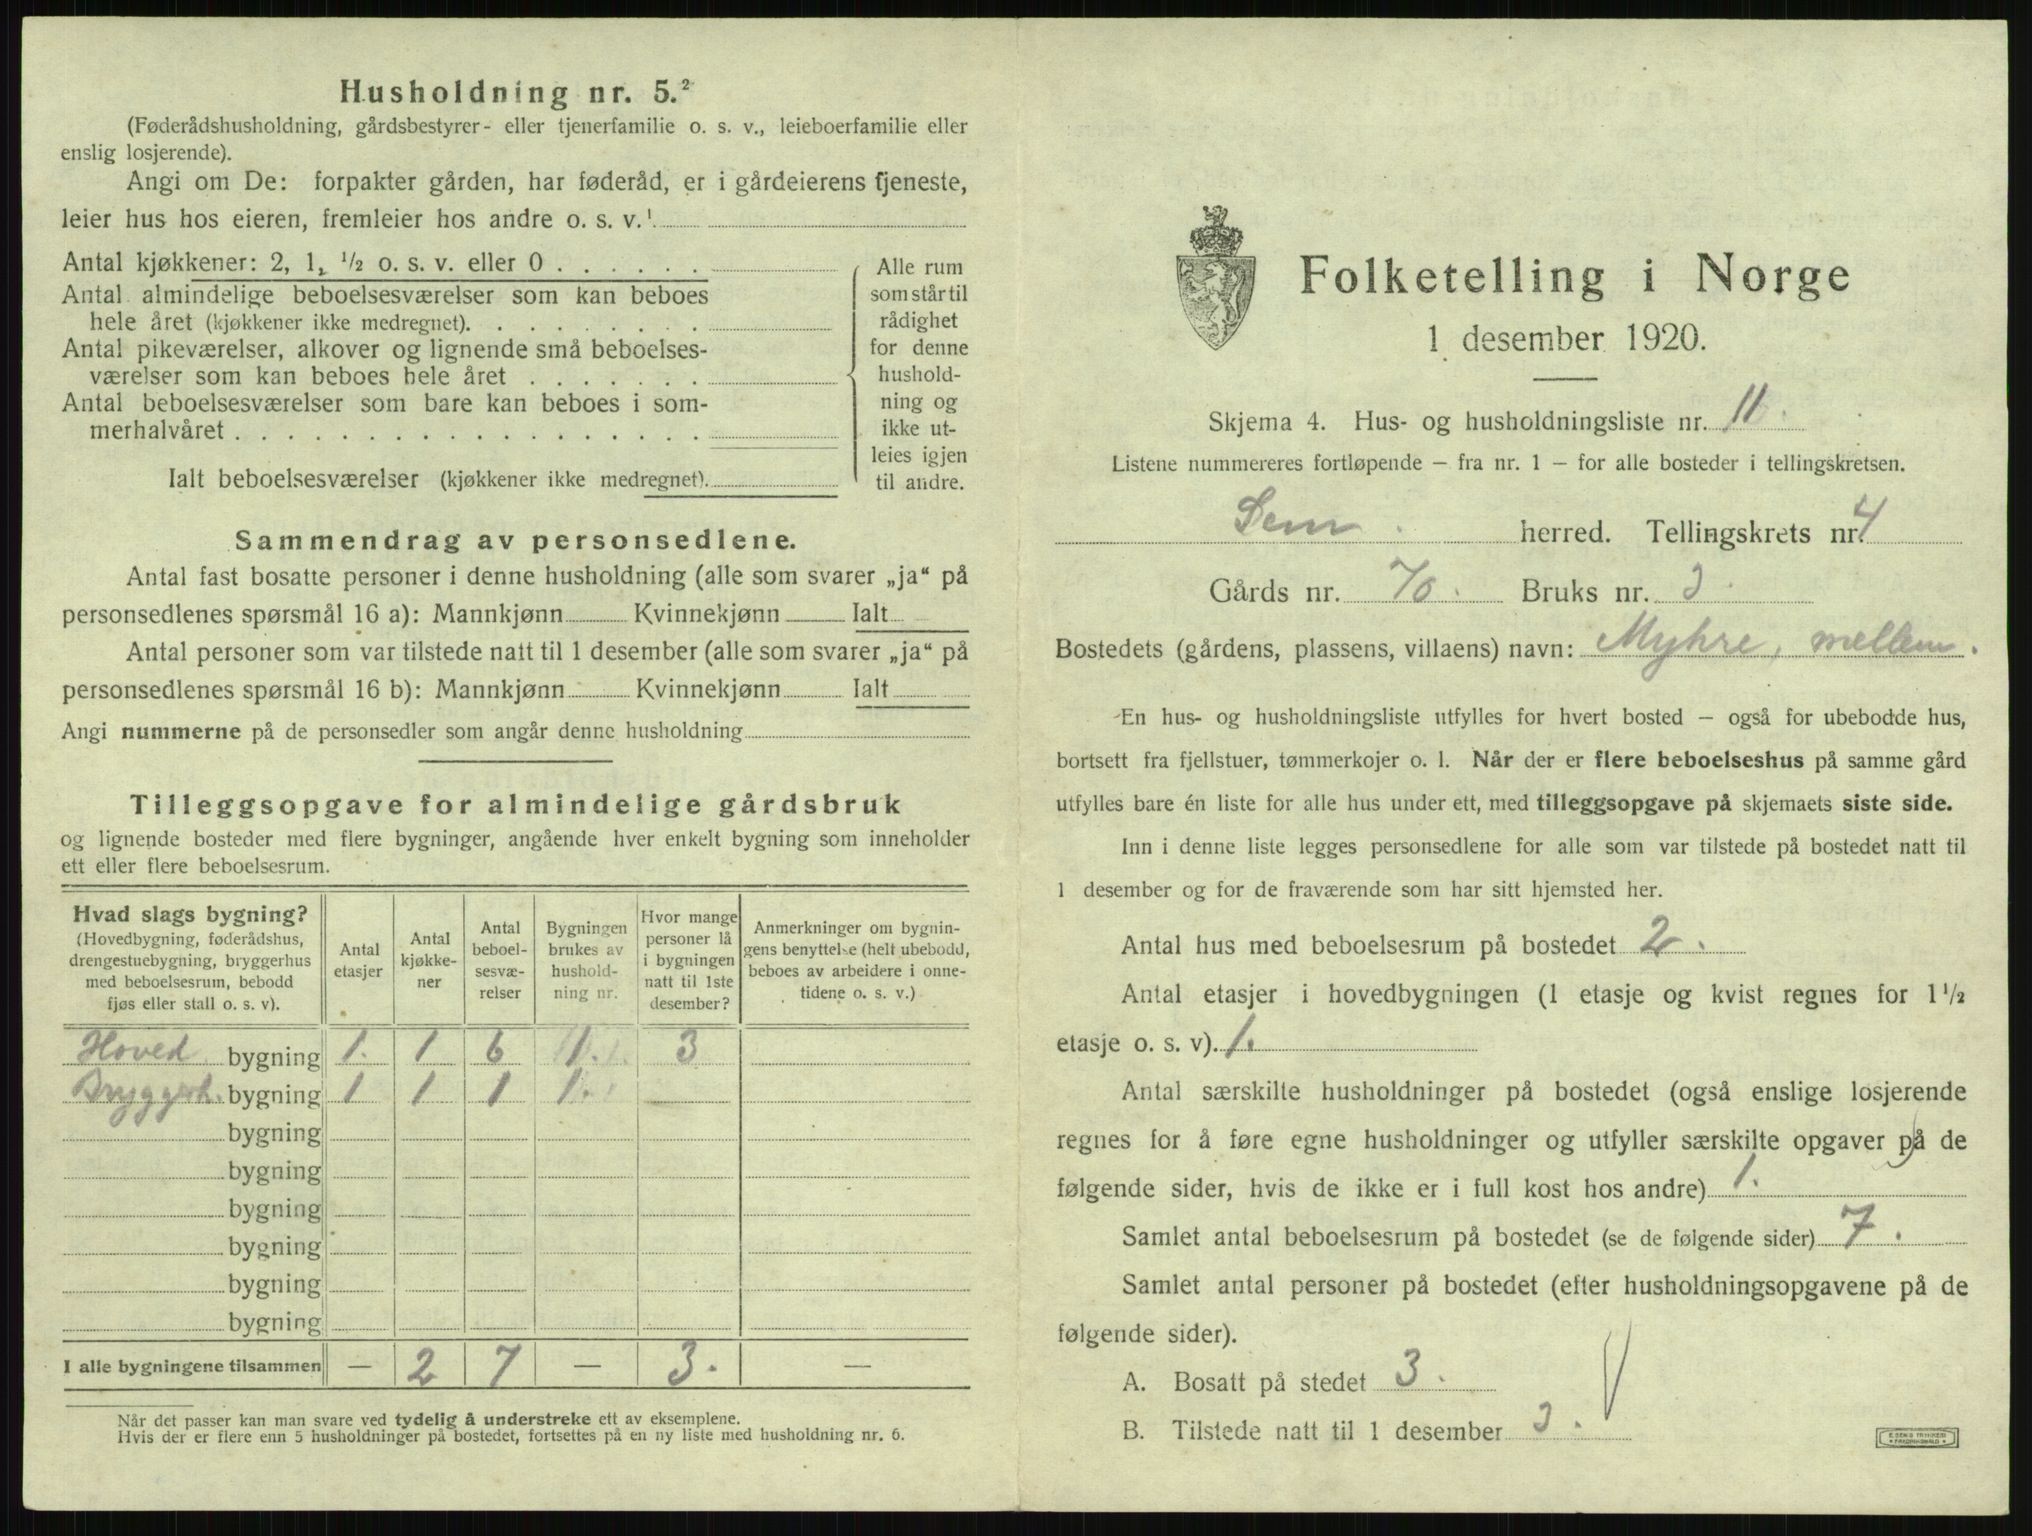 Husholdning nr. 5.²
(Føderådshusholdning, gårdsbestyrer- eller tjenerfamilie o. s. v., leieboerfamilie eller
enslig losjerende).
Angi om De: forpakter gården, har føderåd, er i gårdeierens tjeneste,
leier hus hos eieren, fremleier hos andre o. s. v.¹
Antal kjøkkener: 2, 1, ½ o. s. v. eller 0
Antal almindelige beboelsesværelser som kan beboes
hele året (kjøkkener ikke medregnet).
Antal pikeværelser, alkover og lignende små beboelses-
værelser som kan beboes hele året
Antal beboelsesværelser som bare kan beboes i som-
merhalvåret
Ialt beboelsesværelser (kjøkkener ikke medregnet).
Alle rum
som står til
rådighet
for denne
hushold-
ning og
ikke ut-
leies igjen
til andre.
Sammendrag av personsedlene.
Antal fast bosatte personer i denne husholdning (alle som svarer „ja“ på
personsedlenes spørsmål 16 a): Mannkjønn Kvinnekjønn Ialt
Antal personer som var tilstede natt til 1 desember (alle som svarer „ja“ på
personsedlenes spørsmål 16 b): Mannkjønn Kvinnekjønn Ialt
Angi nummerne på de personsedler som angår denne husholdning
Tilleggsopgave for almindelige gårdsbruk
og lignende bosteder med flere bygninger, angående hver enkelt bygning som inneholder
ett eller flere beboelsesrum.
Hvad slags bygning?
(Hovedbygning, føderådshus,
drengestuebygning, bryggerhus
med beboelsesrum, bebodd
fjøs eller stall o. s. v).
Antal
etasjer
Antal
kjøkke-
ner
Antal
beboel-
sesvæ-
relser
Bygningen
brukes av
hushold-
ning nr.
Hvor mange
personer lå
i bygningen
natt til 1ste
desember?
Anmerkninger om bygnin-
gens benyttelse (helt ubebodd,
beboes av arbeidere i onne-
tidene o. s. v.)
Hoved bygning 1. 1 6 1. 3
Bryggerh. bygning 1 1 1 1.
bygning
bygning
bygning
bygning
bygning
bygning
I alle bygningene tilsammen — 2 7 — 3. —
Når det passer kan man svare ved tydelig å understreke ett av eksemplene.
Hvis der er flere enn 5 husholdninger på bostedet, fortsettes på en ny liste med husholdning nr. 6.
Folketelling i Norge
1 desember 1920.
Skjema 4. Hus- og husholdningsliste nr. 11.
Listene nummereres fortløpende – fra nr. 1 – for alle bosteder i tellingskretsen.
Sem herred. Tellingskrets nr. 4
Gårds nr. 70. Bruks nr. 3
Bostedets (gårdens, plassens, villaens) navn: Myhre, mellem.
En hus- og husholdningsliste utfylles for hvert bosted – også for ubebodde hus,
bortsett fra fjellstuer, tømmerkojer o. l. Når der er flere beboelseshus på samme gård
utfylles bare én liste for alle hus under ett, med tilleggsopgave på skjemaets siste side.
Inn i denne liste legges personsedlene for alle som var tilstede på bostedet natt til
1 desember og for de fraværende som har sitt hjemsted her.
Antal hus med beboelsesrum på bostedet 2.
Antal etasjer i hovedbygningen (1 etasje og kvist regnes for 1½
etasje o. s. v). 1.
Antal særskilte husholdninger på bostedet (også enslige losjerende
regnes for å føre egne husholdninger og utfyller særskilte opgaver på de
følgende sider, hvis de ikke er i full kost hos andre) 1.
Samlet antal beboelsesrum på bostedet (se de følgende sider) 7.
Samlet antal personer på bostedet (efter husholdningsopgavene på de
følgende sider).
A. Bosatt på stedet 3.
B. Tilstede natt til 1 desember 3.